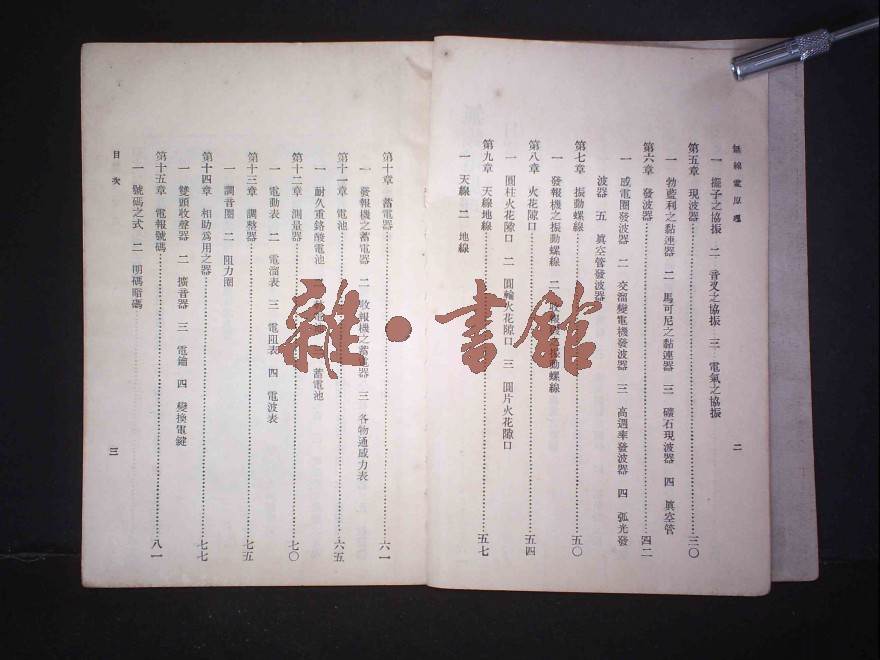 無線電原理
二
一 擺子之協振 二 音叉之協振 三 電氣之協振
第五章 現波器……三〇
一 勃藍利之黏連器 二 馬可尼之黏連器 三 礦石現波器 四 眞空管
第六章 發波器……四二
一 感電圈發波器 二 交溜變電機發波器 三 高週率發波器 四 弧光發
波器 五 眞空管發波器
第七章 振動螺線……五〇
一 發報機之振動螺線 二 收報機之振動螺線
第八章 火花隙口……五四
一 圓柱火花隙口 二 圓輪火花隙口 三 圓片火花隙口
第九章 天線地線……五七
一 天線 二 地線
第十章 蓄電器……六一
一 發報機之蓄電器 二 收報機之蓄電器 三 各物通感力表
第十一章 電池……六五
一 耐久重鉻酸電池 蓄電池
第十二章 測量器……七〇
一 電動表 二 電溜表 三 電阻表 四 電波表
第十三章 調整器……七五
一 調音圈 二 阻力圈
第十四章 相助爲用之器……七七
一 雙頭收聲器 二 擴音器 三 電鑰 四 變換電鍵
第十五章 電報號碼……八一
一 號碼之式 二 明碼暗碼
目次
三
雜·書館